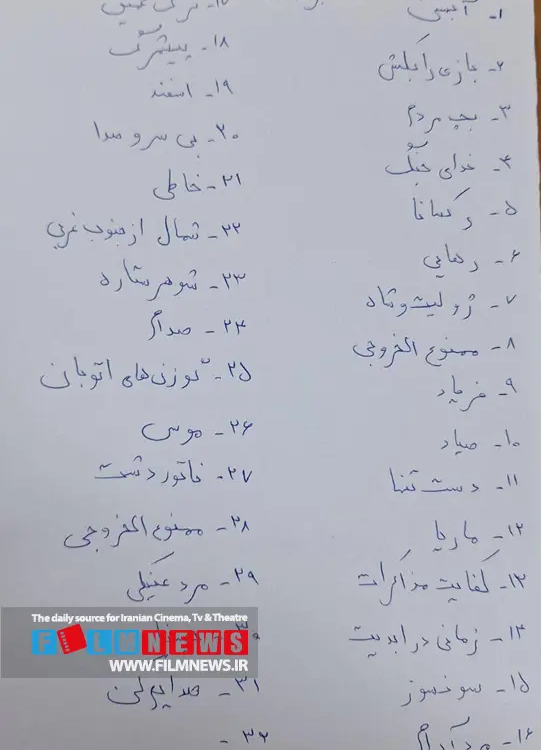 ۱-
۲- بازی را بکش
۳- بچه مردم
۴- خدای جنگ
۵- رکسانا
۶- رهایی
۷- ژولیت و شاه
۸- ممنوع الخروجی
۹- فریاد
۱۰- صیاد
۱۱- دست تنها
۱۲- ماریا
۱۳- کفایت مذاکرات
۱۴- زمانی در ابدیت
۱۵- سونسوز
۱۶-
۱۷-
۱۸- پیشمرگ
۱۹- اسفند
۲۰- بی سر و صدا
۲۱- خاطی
۲۲- شمال از جنوب غربی
۲۳- شوهر ستاره
۲۴- صدام
۲۵- گوزن‌های اتوبان
۲۶- موسی
۲۷- ناتور دشت
۲۸- ممنوع الخروجی
۲۹- مرد عینکی
۳۱-
۳۲-
The daily source for Iranian Cinema, Tv & Theatre
FILMNEWS
WWW.FILMNEWS.IR